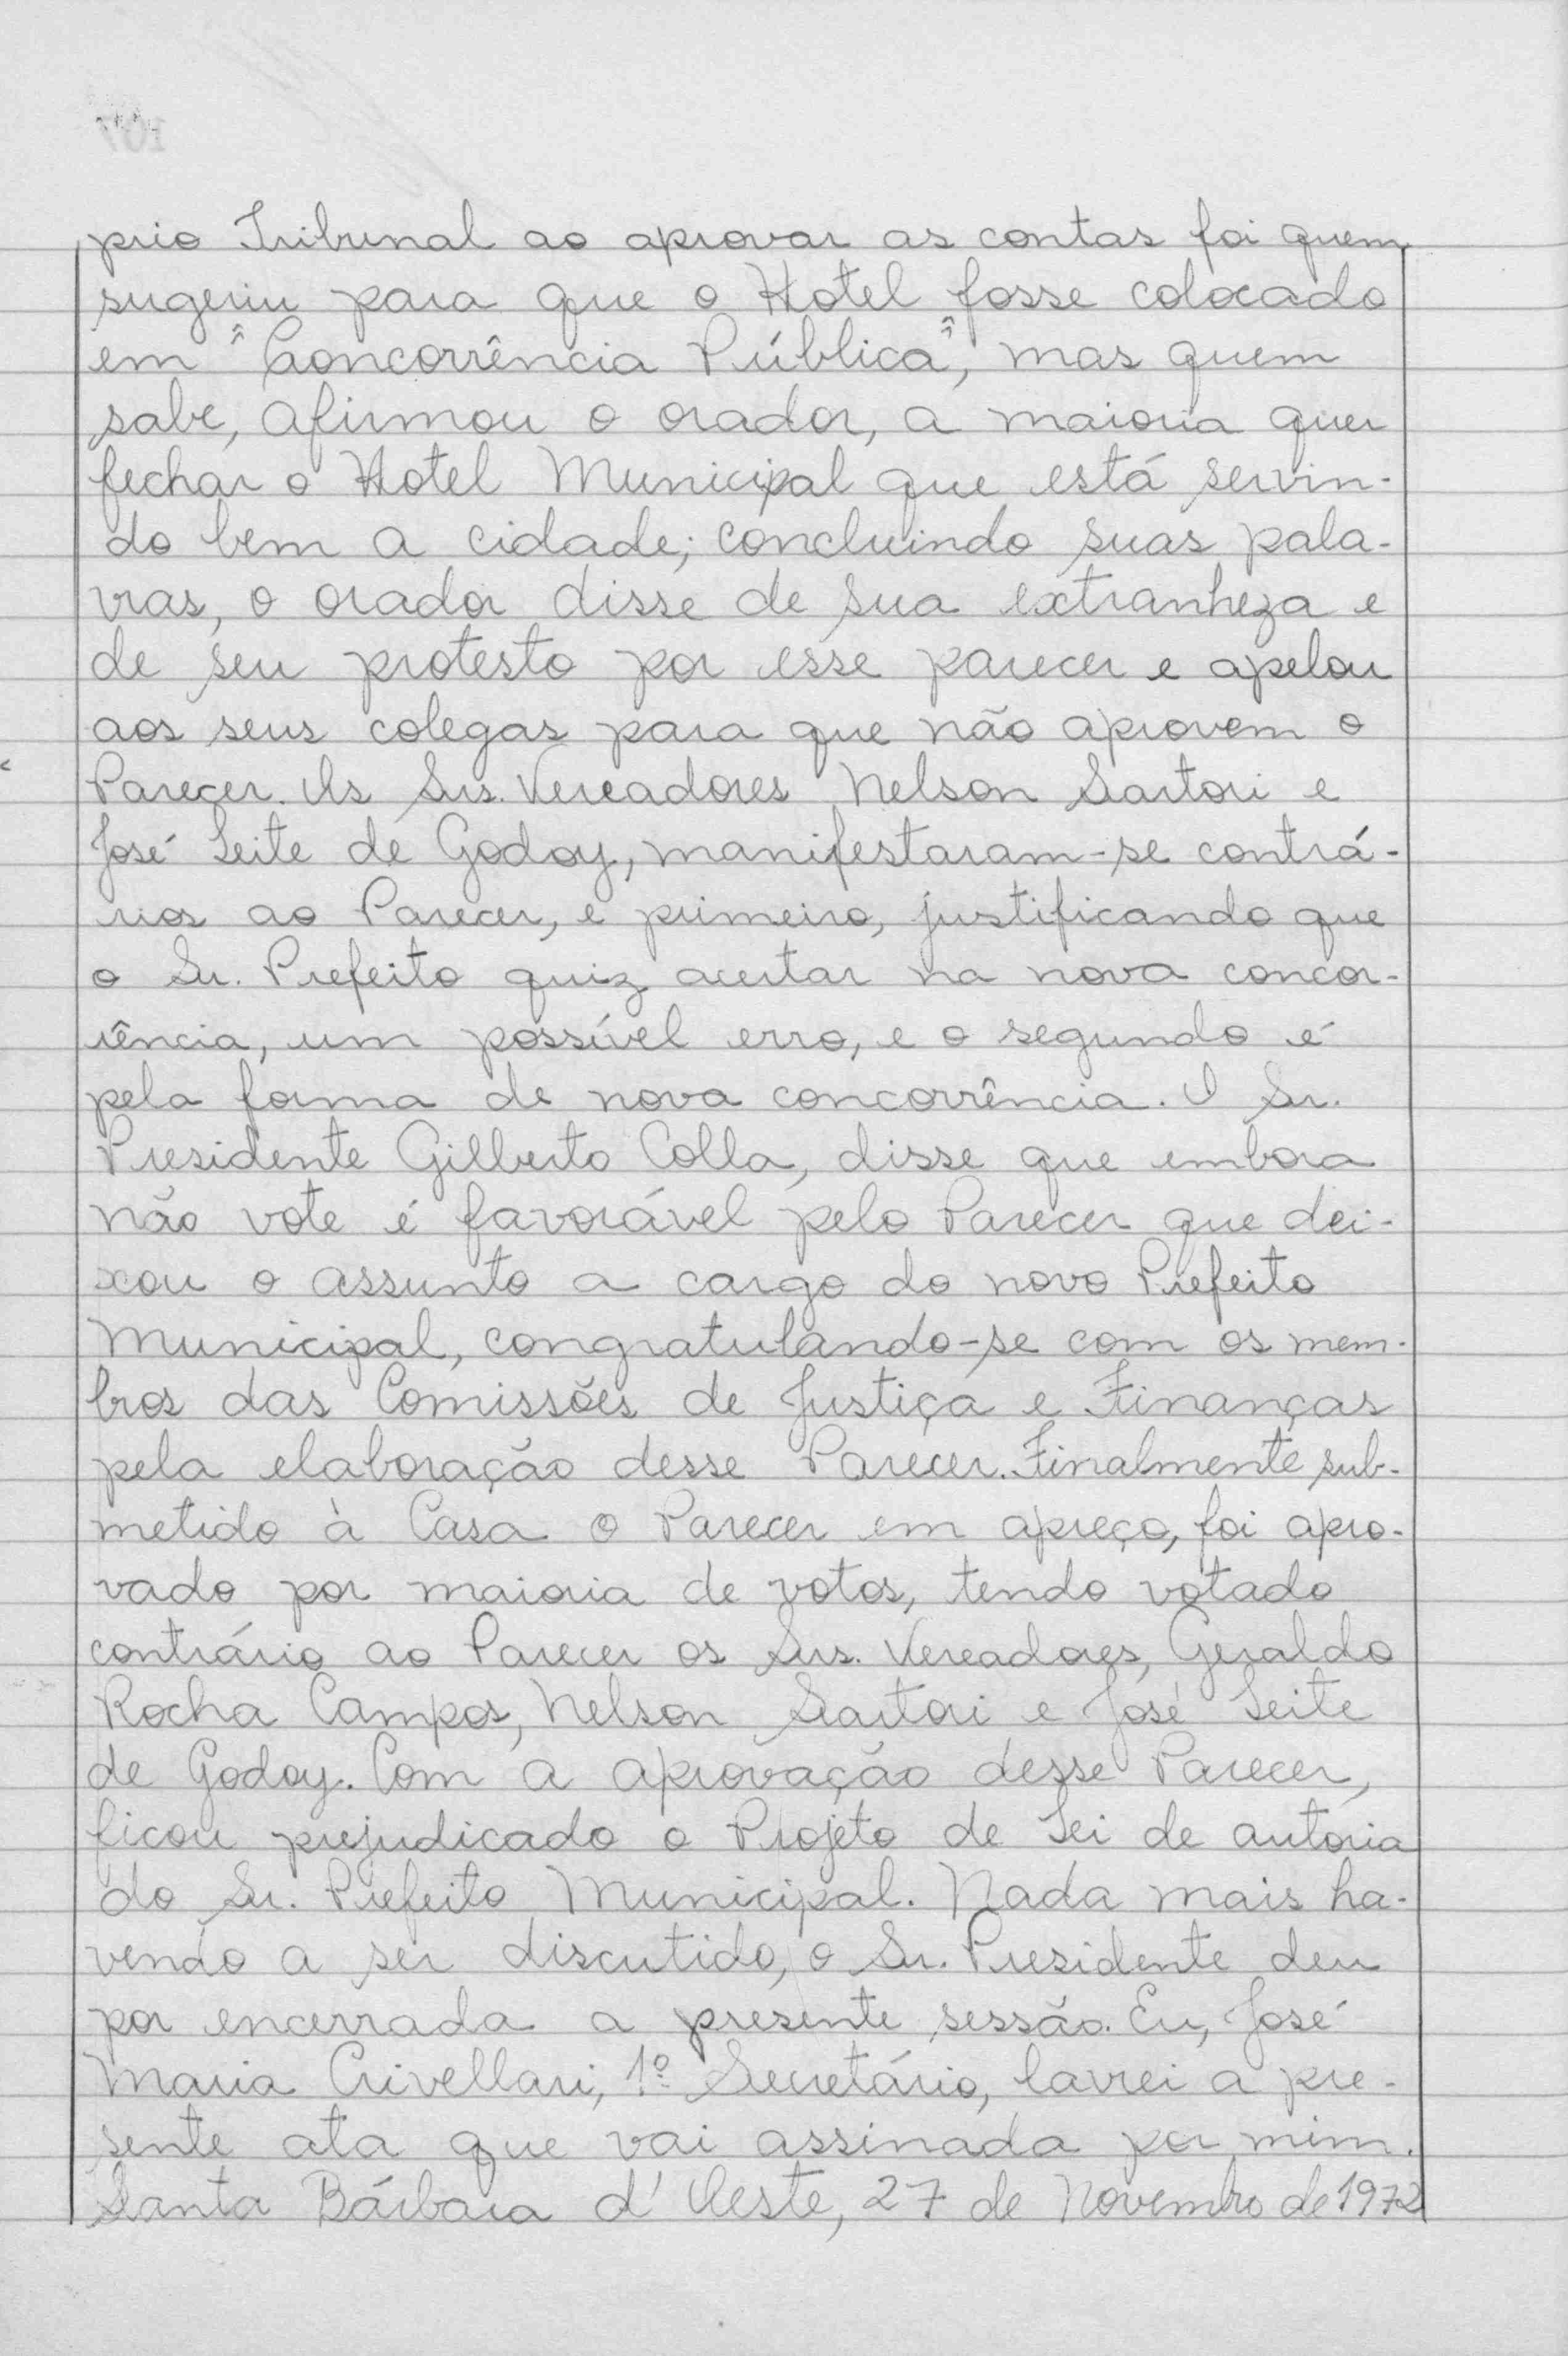 prio Tribunal ao aprovar as contas foi quem
sugeriu para que o Hotel fosse colocado
em "Concorrência Pública", mas quem
sabe, afirmou o orador, a maioria quer
fechar o Hotel Municipal que está servin-
do bem a cidade; concluindo suas pala-
vras, o orador disse de sua extranheza e
de seu protesto por esse parecer e apelou
aos seus colegas para que não aprovem o
Parecer. Os Srs. Vereadores Nelson Sartori e
José Leite de Godoy, manifestaram-se contrá-
rios ao Parecer, e primeiro, justificando que
o Sr. Prefeito quiz acertar na nova concor-
rência, um possível erro, e o segundo é
pela forma de nova concorrência. O Sr.
Presidente Gilberto Colla, disse que embora
não vote é favorável pelo Parecer que dei-
xou o assunto a cargo do novo Prefeito
Municipal, congratulando-se com os mem-
bros das Comissões de Justiça e Finanças
pela elaboração desse Parecer. Finalmente sub-
metido à Casa o Parecer em apreço, foi apro-
vado por maioria de votos, tendo votado
contrário ao Parecer os Srs. Vereadores, Geraldo
Rocha Campos, Nelson Sartori e José Leite
de Godoy. Com a aprovação desse Parecer,
ficou prejudicado o Projeto de Lei de autoria
do Sr. Prefeito Municipal. Nada mais ha-
vendo a ser discutido, o Sr. Presidente deu
por encerrada a presente sessão. Eu, José
Maria Crivellari, 1º Secretário, lavrei a pre-
sente ata que vai assinada por mim.
Santa Bárbara d'Oeste, 27 de Novembro de 1972